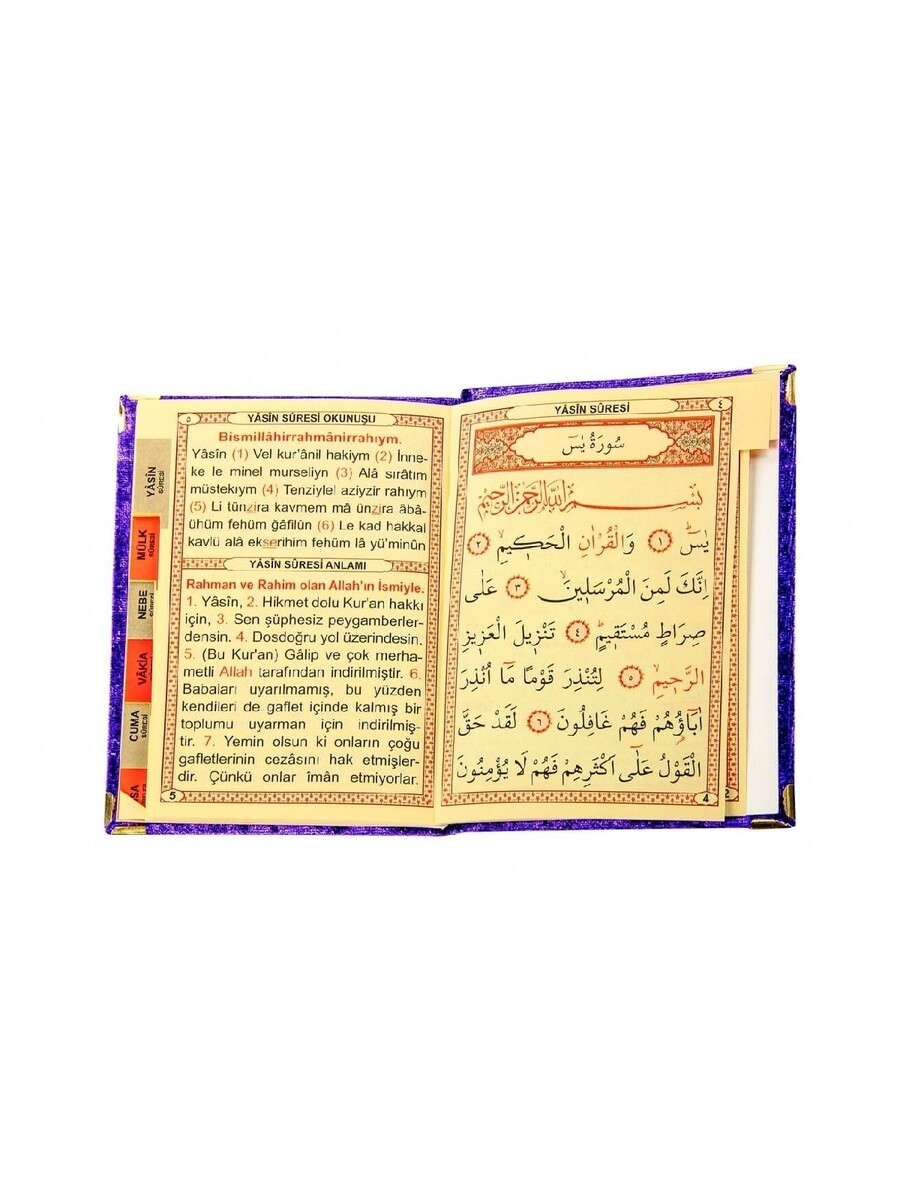 ٥ YÂSÎN SÛRESİ OKUNUŞU
Bismillâhirrahmânirrahıym.
Yâsîn (1) Vel kur'ânil hakiym (2) İnne-
ke le minel murseliyn (3) Alâ sırâtım
müstekıym (4) Tenziylel aziyzir rahıym
(5) Li tünzira kavmem mâ ünzira âbâ-
ühüm fehüm ğâfilûn (6) Le kad hakkal
kavlü alâ ekserihim fehüm lâ yü'minûn
YÂSÎN SÛRESİ ANLAMI
Rahman ve Rahim olan Allah'ın İsmiyle.
1. Yâsîn, 2. Hikmet dolu Kur'an hakkı
için, 3. Sen şüphesiz peygamberler-
densin. 4. Dosdoğru yol üzerindesin.
5. (Bu Kur'an) Gâlip ve çok merha-
metli Allah tarafından indirilmiştir. 6.
Babaları uyarılmamış, bu yüzden
kendileri de gaflet içinde kalmış bir
toplumu uyarman için indirilmiş-
tir. 7. Yemin olsun ki onların çoğu
gafletlerinin cezasını hak etmişler-
dir. Çünkü onlar îmân etmiyorlar.
5
YÂSÎN
SÛRESİ
MÜLK
SÛRESİ
NEBE
VÂKİA
CUMA
SÛRESİ
SA
YÂSÎN SÛRESİ ٤
سُورَةُ يٰسٓ
بِسْمِ اللّٰهِ الرَّحْمٰنِ الرَّحِيمِ
يٰسٓۜ ﴿١﴾ وَالْقُرْاٰنِ الْحَكِيمِۙ ﴿٢﴾
اِنَّكَ لَمِنَ الْمُرْسَلِينَۙ ﴿٣﴾ عَلٰى
صِرَاطٍ مُسْتَقِيمٍۜ ﴿٤﴾ تَنْزِيلَ الْعَزِيزِ
الرَّحِيمِۙ ﴿٥﴾ لِتُنْذِرَ قَوْمًا مَٓا اُنْذِرَ
اٰبَٓاؤُهُمْ فَهُمْ غَافِلُونَ ﴿٦﴾ لَقَدْ حَقَّ
الْقَوْلُ عَلٰٓى اَكْثَرِهِمْ فَهُمْ لَا يُؤْمِنُونَ
4
2